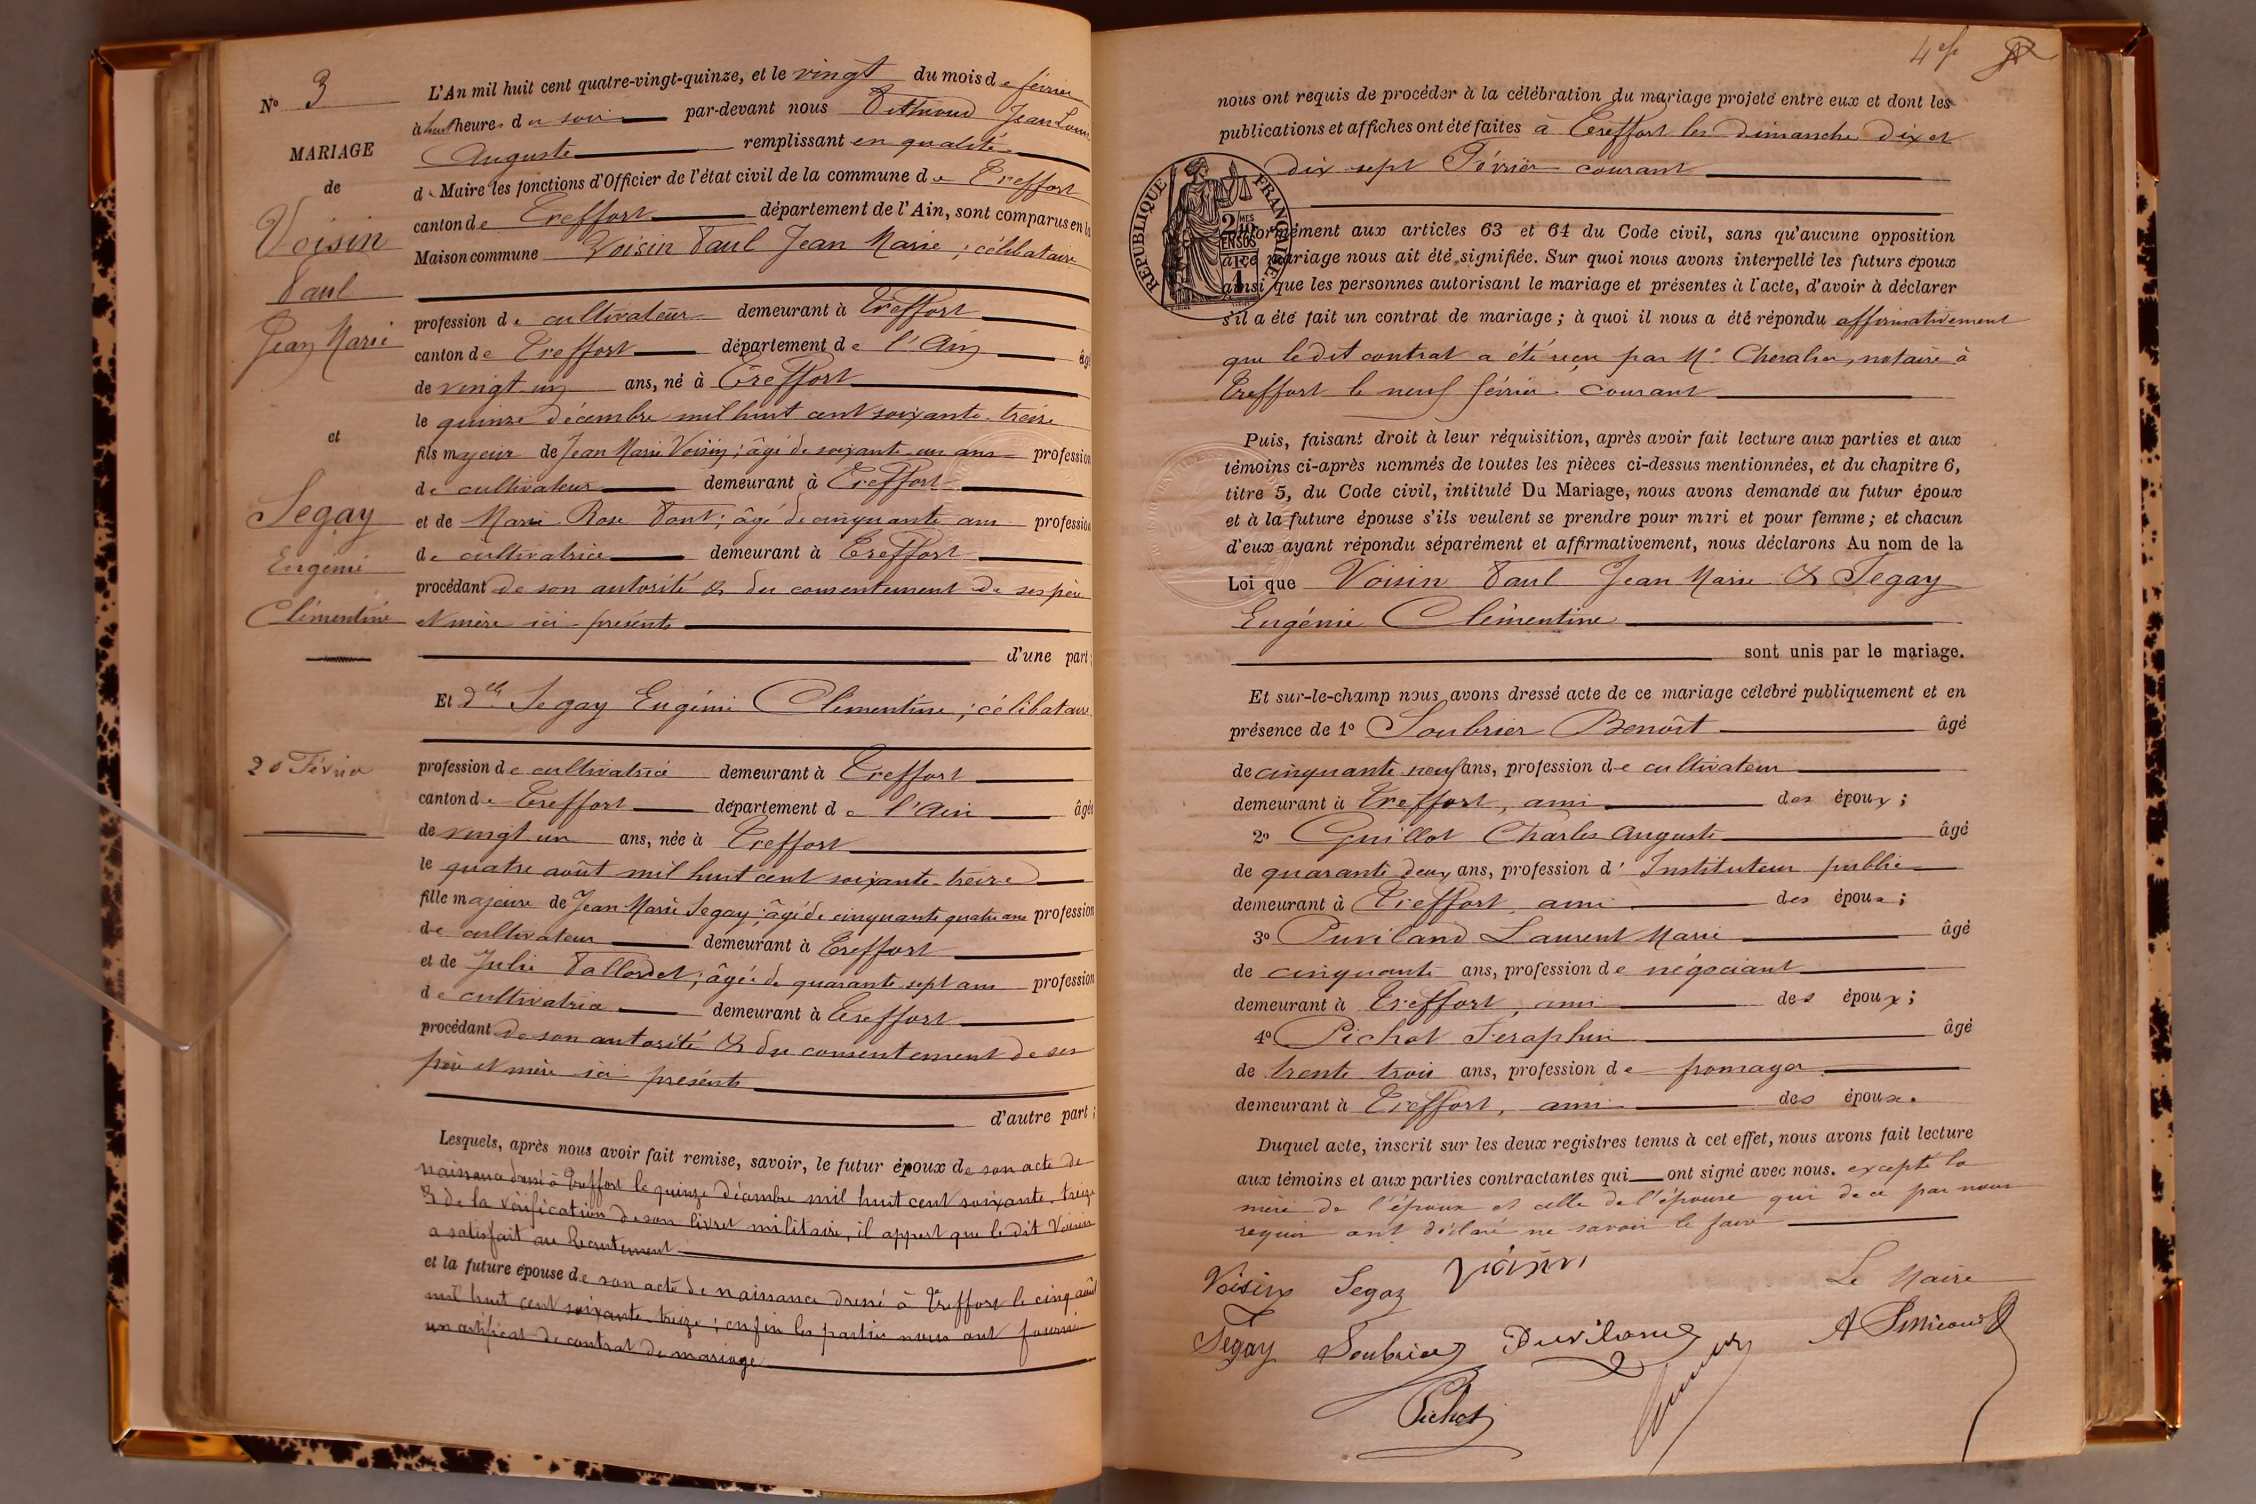 N° 3
MARIAGE
de
Voisin
Paul
Jean Marie
et
Segay
Eugénie
Clémentine
20 Février
L'An mil huit cent quatre-vingt-quinze, et le vingt du mois de février
à huit heures du soir par-devant nous Jean Louis
Auguste remplissant en qualité
de Maire les fonctions d'Officier de l'état civil de la commune de Treffort
canton de Treffort département de l'Ain, sont comparus en la
Maison commune Voisin Paul Jean Marie ; célibataire
profession de cultivateur demeurant à Treffort
canton de Treffort département de l'Ain âgé
de vingt un ans, né à Treffort
le quinze décembre mil huit cent soixante-treize
fils majeur de Jean Marie Voisin ; âgé de soixante un ans profession
de cultivateur demeurant à Treffort
et de Marie Rose Pont ; âgé de cinquante ans profession
de cultivatrice demeurant à Treffort
procédant de son autorité & du consentement de ses père
et mère ici présents
d'une part ;
Et Dlle Segay Eugénie Clémentine ; célibataire
profession de cultivatrice demeurant à Treffort
canton de Treffort département de l'Ain âgée
de vingt un ans, née à Treffort
le quatre août mil huit cent soixante-treize
fille majeure de Jean Marie Segay ; âgé de cinquante quatre ans profession
de cultivateur demeurant à Treffort
et de Julie ; âgée de quarante sept ans profession
de cultivatrice demeurant à Treffort
procédant de son autorité & du consentement de ses
père et mère ici présents
d'autre part ;
Lesquels, après nous avoir fait remise, savoir, le futur époux de son acte de
naissance dressé à Treffort le quinze décembre mil huit cent soixante-treize
& de la vérification de son livret militaire, il appert que le dit Voisin
a satisfait au Recrutement
et la future épouse de son acte de naissance dressé à Treffort le cinq août
mil huit cent soixante-treize ; enfin les parties nous ont fourni
un certificat de contrat de mariage
nous ont requis de procéder à la célébration du mariage projeté entre eux et dont les
publications et affiches ont été faites à Treffort les dimanche dix et
dix sept Février courant
RÉPUBLIQUE FRANÇAISE
2/10 MES
EN SUS
1
conformément aux articles 63 et 64 du Code civil, sans qu'aucune opposition
à ce mariage nous ait été signifiée. Sur quoi nous avons interpellé les futurs époux
ainsi que les personnes autorisant le mariage et présentes à l'acte, d'avoir à déclarer
s'il a été fait un contrat de mariage ; à quoi il nous a été répondu affirmativement
que ledit contrat a été reçu par Me Chevalier, notaire à
Treffort le neuf février courant
Puis, faisant droit à leur réquisition, après avoir fait lecture aux parties et aux
témoins ci-après nommés de toutes les pièces ci-dessus mentionnées, et du chapitre 6,
titre 5, du Code civil, intitulé Du Mariage, nous avons demandé au futur époux
et à la future épouse s'ils veulent se prendre pour mari et pour femme ; et chacun
d'eux ayant répondu séparément et affirmativement, nous déclarons Au nom de la
Loi que Voisin Paul Jean Marie & Segay
Eugénie Clémentine
sont unis par le mariage.
Et sur-le-champ nous avons dressé acte de ce mariage célébré publiquement et en
présence de 1° Soubrier Benoît âgé
de cinquante neuf ans, profession de cultivateur
demeurant à Treffort, ami des époux ;
2° Guillot Charles Auguste âgé
de quarante deux ans, profession d'Instituteur public
demeurant à Treffort, ami des époux ;
3° Puviland Laurent Marie âgé
de cinquante ans, profession de négociant
demeurant à Treffort, ami des époux ;
4° Pichot Séraphin âgé
de trente trois ans, profession de fromager
demeurant à Treffort, ami des époux.
Duquel acte, inscrit sur les deux registres tenus à cet effet, nous avons fait lecture
aux témoins et aux parties contractantes qui ont signé avec nous. excepté la
mère de l'époux et celle de l'épouse qui de ce par nous
requis ont déclaré ne savoir le faire
Voisin Segay Voisin Le Maire
Segay Soubrier Puviland
Pichot